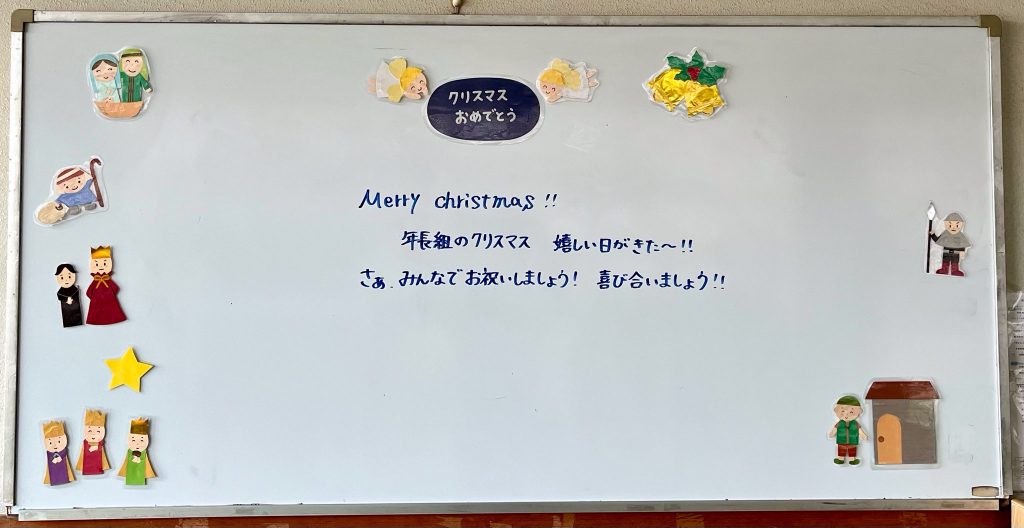 クリスマス
おめでとう
Merry christmas!!
年長組のクリスマス 嬉しい日がきた〜!!
さぁ、みんなでお祝いしましょう! 喜び合いましょう!!